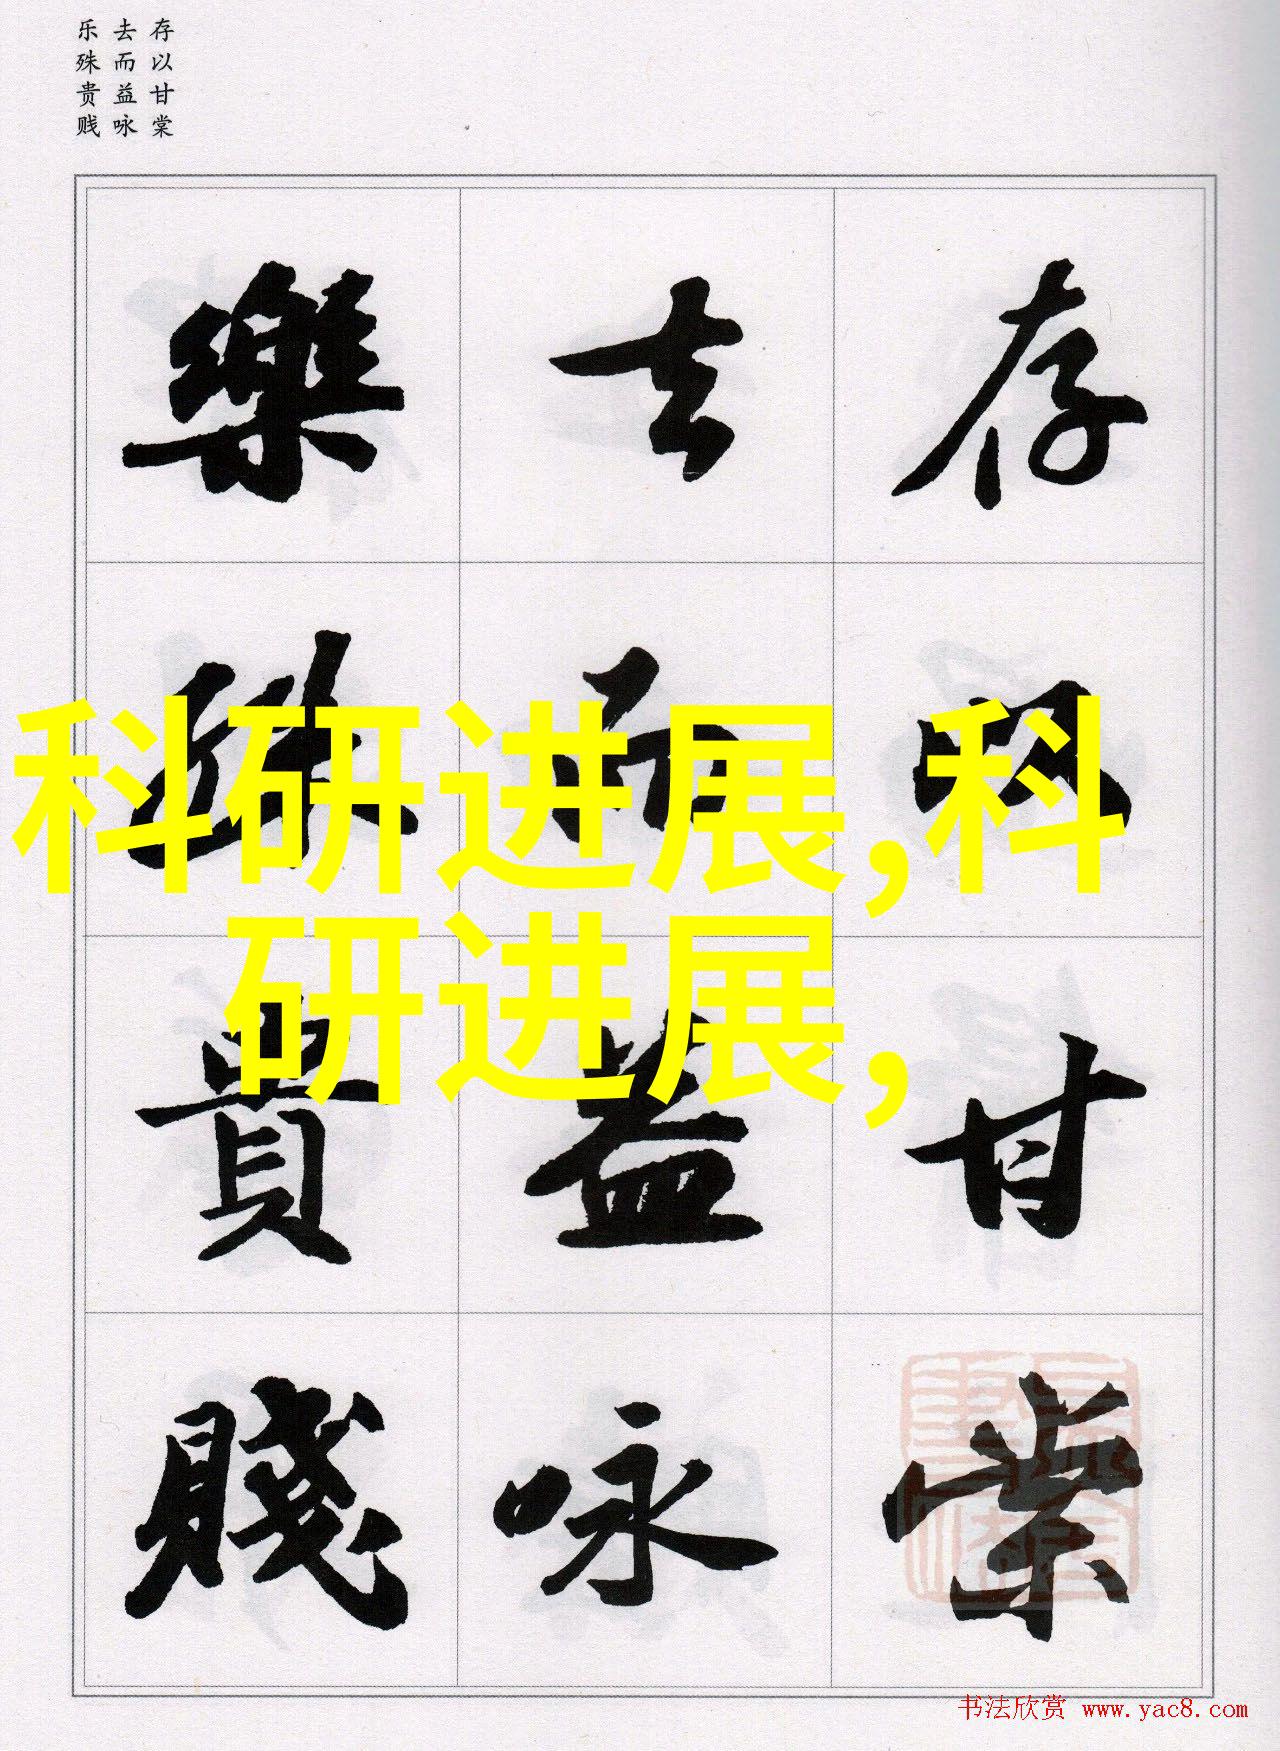 存以甘棠
去而益咏
乐殊贵贱
存以甘棠
去而益咏
樂殊貴賤
科研进展,科
研进展,
书法欣赏 www.yac8.com